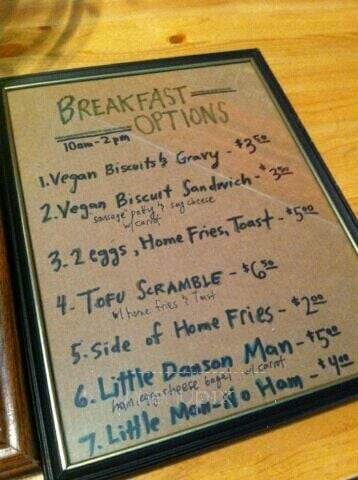 BREAKFAST
OPTIONS
10am-2pm
1. Vegan Biscuits & Gravy - $3.50
2. Vegan Biscuit Sandwich - $3.50
sausage patty & soy cheese
w/ carrot
3. 2 eggs, Home Fries, Toast - $5.00
4. TOFU SCRAMBLE - $6.50
w/ home fries & toast
5. Side of Home Fries - $2.00
6. Little Danson Man - $5.00
ham egg cheese bagel w/ carrot
7. Little Man - No Ham - $4.00